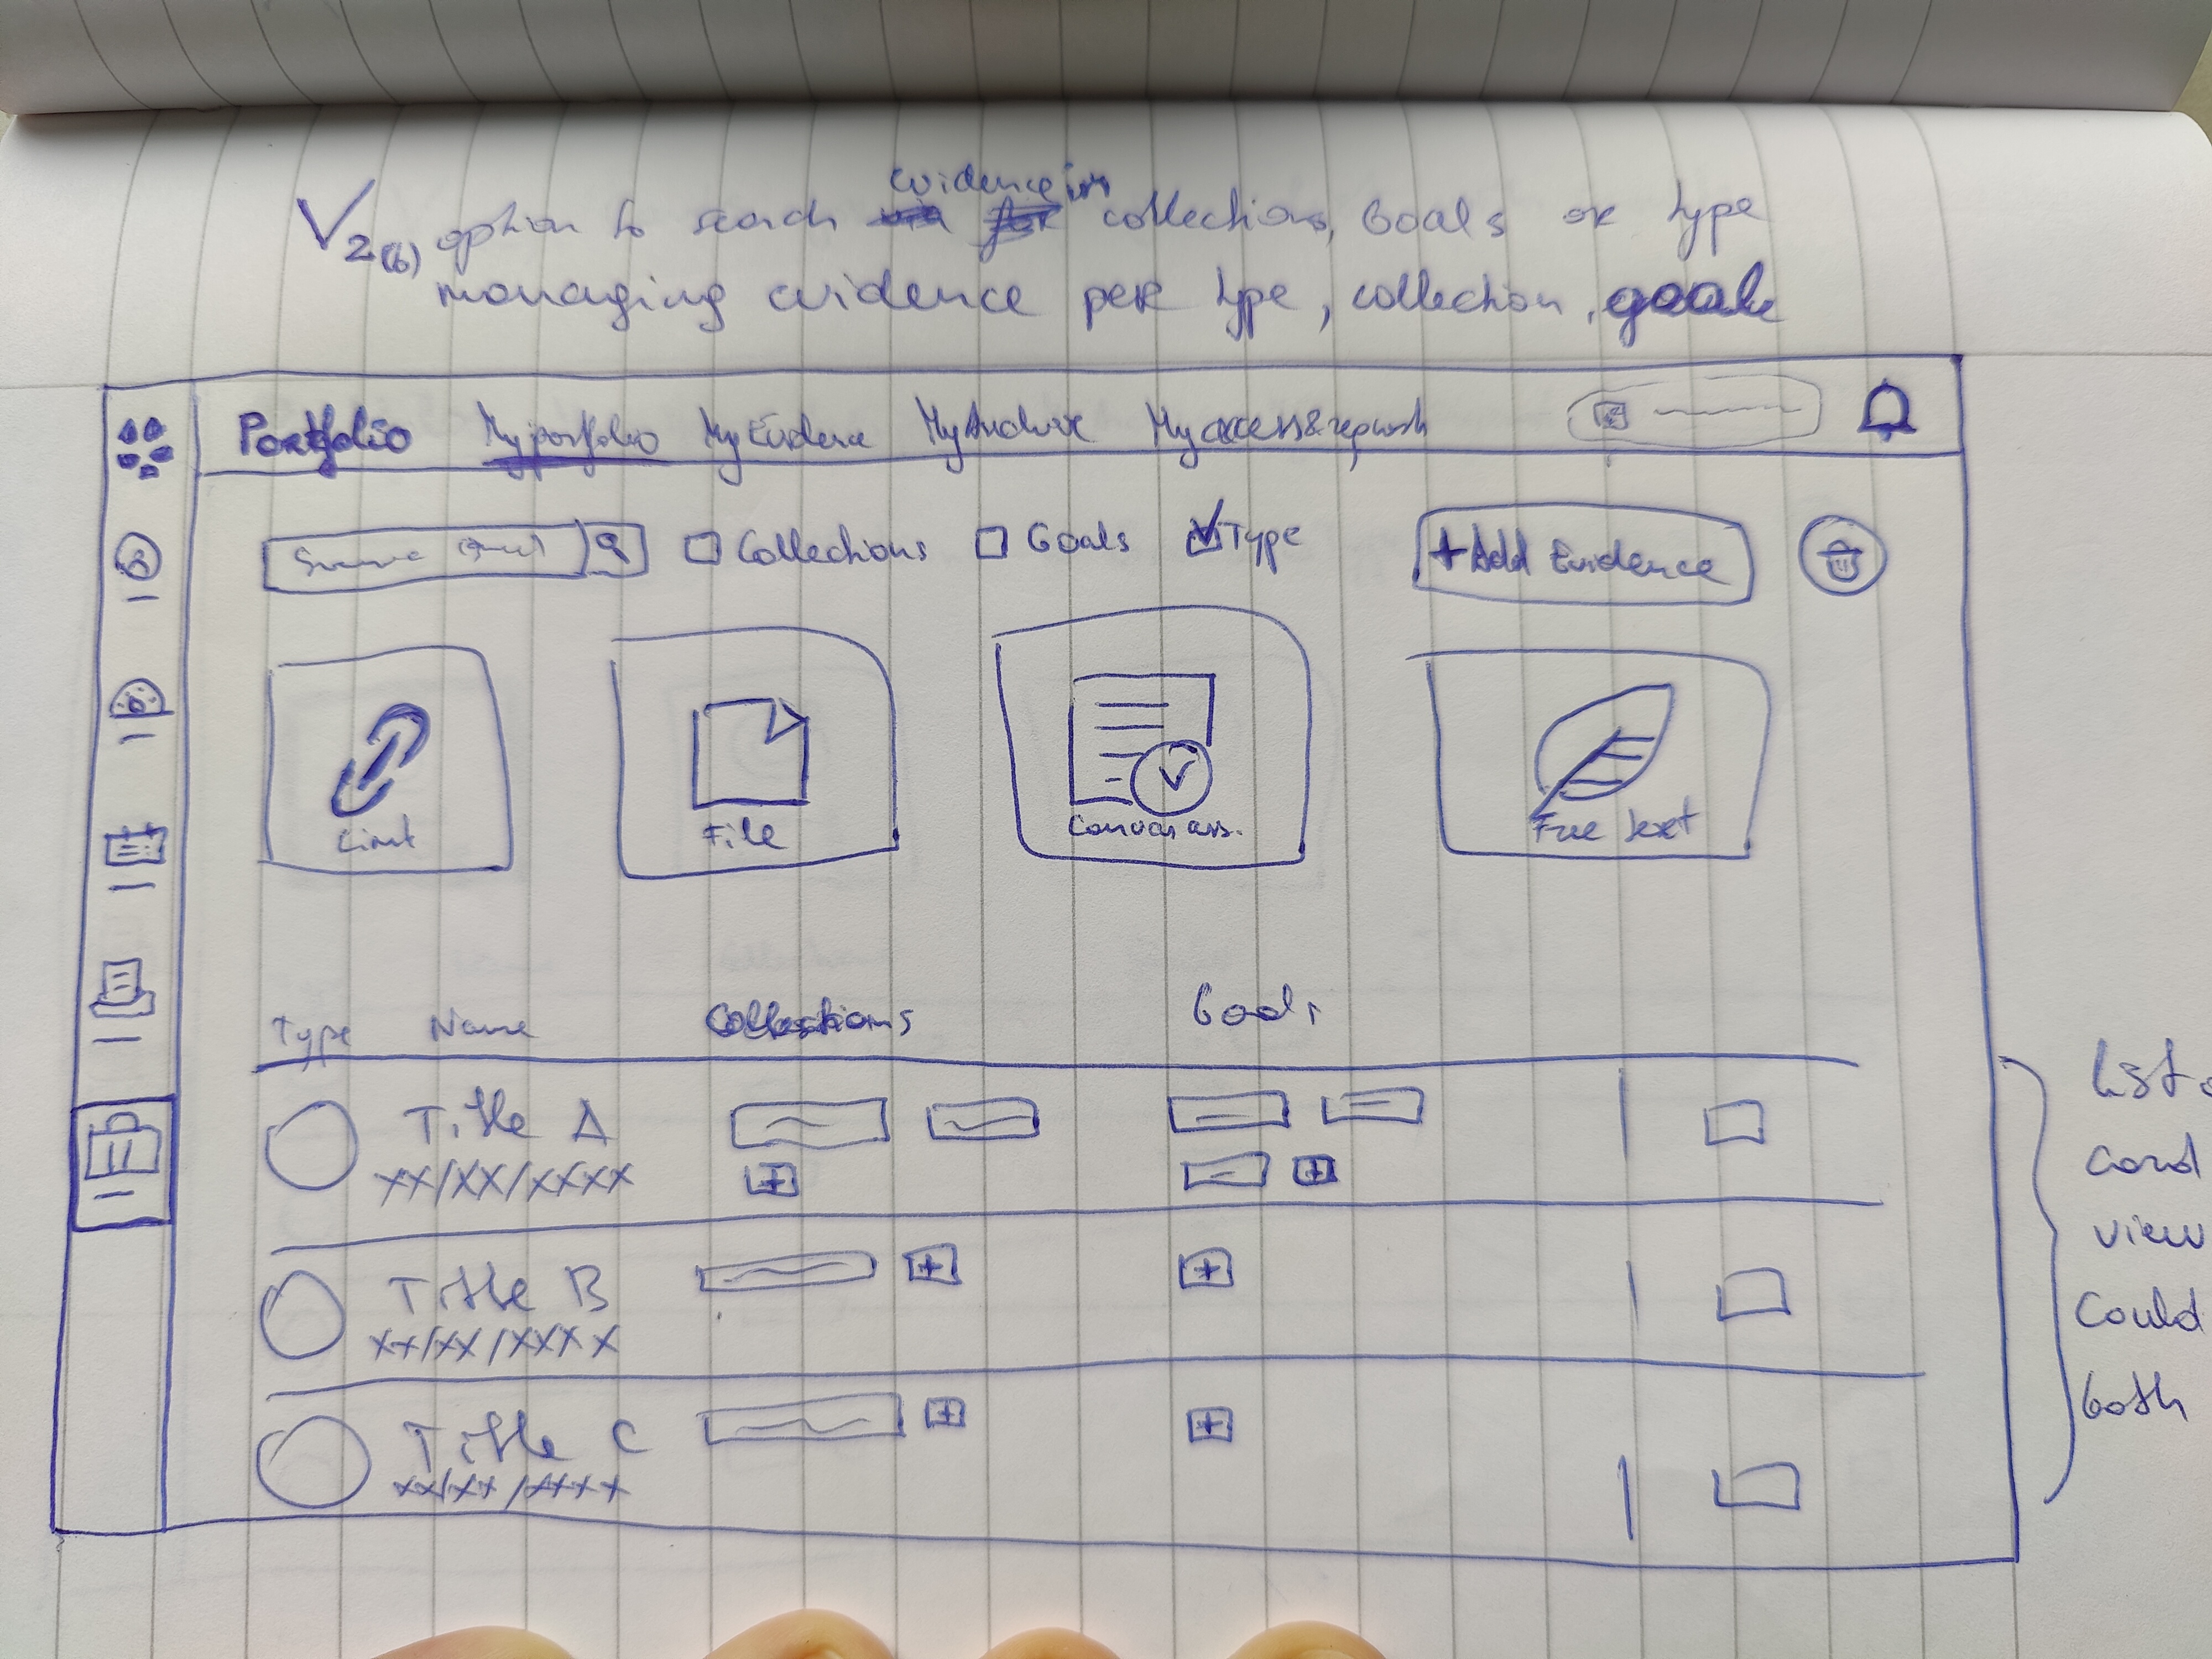 V2(b) option to search evidence in collections, Goals or type
managing evidence per type, collection, goals
Portfolio My portfolio My Evidence My Archive My access & requests
Collections Goals Type +Add Evidence
Link File Canvas ass. Free text
Type Name Collections Goals
Title A
xx/xx/xxxx
Title B
xx/xx/xxxx
Title C
xx/xx/xxxx
list
card
view
could
both